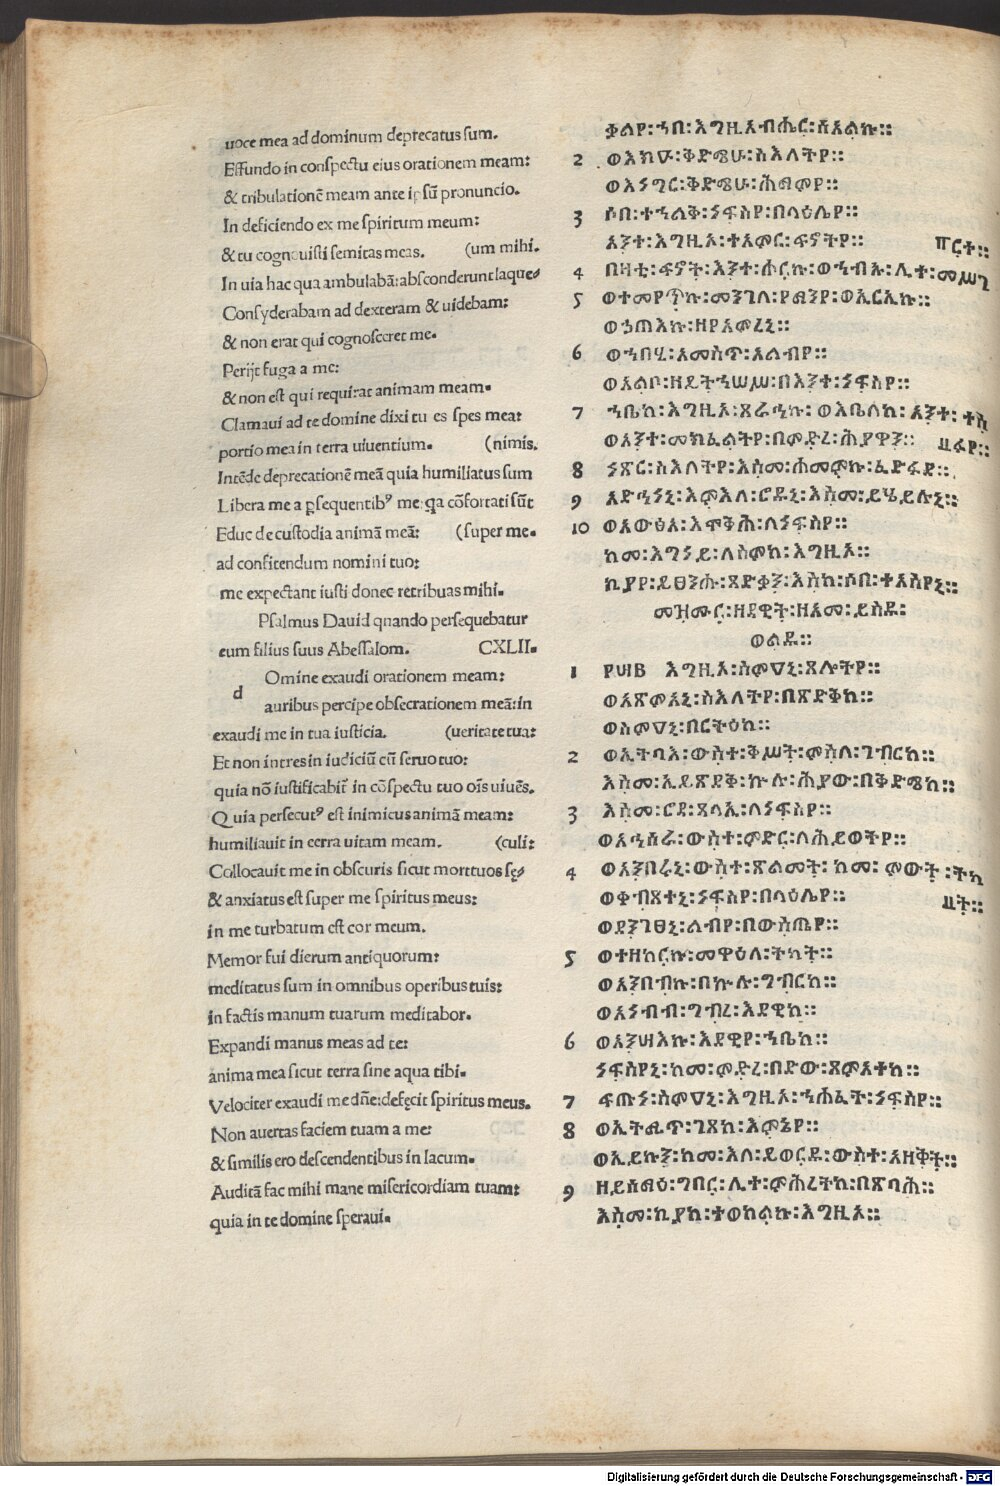 uoce mea ad dominum deprecatus sum.
Effundo in conspectu eius orationem meam:
& tribulationē meam ante ipsū pronuncio.
In deficiendo ex me spiritum meum:
& tu cognouisti semitas meas. (um mihi.
In uia hac qua ambulabā: absconderunt laque⸗
Consyderabam ad dexteram & uidebam:
& non erat qui cognosceret me.
Perijt fuga a me:
& non est qui requirat animam meam.
Clamaui ad te domine dixi tu es spes mea:
portio mea in terra uiuentium. (nimis.
Intēde deprecationē meā quia humiliatus sum
Libera me a psequentib⁹ me: qa cōfortati sūt
Educ de custodia animā meā: (super me.
ad confitendum nomini tuo:
me expectant iusti donec retribuas mihi.
Psalmus Dauid quando persequebatur
eum filius suus Abessalom. CXLII.
d Omine exaudi orationem meam:
auribus percipe obsecrationem meā: in
exaudi me in tua iusticia. (ueritate tua:
Et non intres in iudiciū cū seruo tuo:
quia nō iustificabit̄ in cōspectu tuo oīs uiuēs.
Quia persecut⁹ est inimicus animā meam:
humiliauit in terra uitam meam. (culi:
Collocauit me in obscuris sicut morttuos sę⸗
& anxiatus est super me spiritus meus:
in me turbatum est cor meum.
Memor fui dierum antiquorum:
meditatus sum in omnibus operibus tuis:
in factis manum tuarum meditabor.
Expandi manus meas ad te:
anima mea sicut terra sine aqua tibi.
Velociter exaudi me dn̄e: defęcit spiritus meus.
Non auertas faciem tuam a me:
& similis ero descendentibus in lacum.
Auditā fac mihi mane misericordiam tuam:
quia in te domine speraui.
ቃልየ:ኀበ:እግዚአብሔር:ሰአልኩ::
2 ወእክዑ:ቅድሜሁ:ስእለትየ::
ወእነግር:ቅድሜሁ:ሕማምየ::
3 ሶበ:ተኀልቅ:ነፍስየ:በላዕሌየ::
አንተ:እግዚኦ:ተአምር:ፍኖትየ:: ፐርተ::
4 በዛቲ:ፍኖት:እንተ:ሖርኩ:ወኀብኡ:ሊተ:መሥገ
5 ወተመየጥኩ:መንገለ:የማንየ:ወእርእኩ::
ወኃጠእኩ:ዘየአምረኒ::
6 ወኀበሂ:አመስጥ:አልብየ::
ወአልቦ:ዘይትኀሠሥ:በእንተ:ነፍስየ::
7 ኀቤከ:እግዚኦ:ጸራኅኩ:ወእቤለከ:አንተ:ተስ
ወአንተ:መክፈልትየ:በምድረ:ሕያዋን:: ፈዋየ::
8 ነጽር:ስእለትየ:እስመ:ሐመምኩ:ፈድፋደ::
9 አድኅነኒ:እምእለ:ሮዱኒ:እስመ:ይሄይሉኒ::
10 ወአውፅአ:እሞቅሕ:ለነፍስየ::
ከመ:እግነይ:ለስምከ:እግዚኦ::
ኪያየ:ይፀንሑ:ጻድቃን:እስከ:ሶበ:ተአስየኒ::
መዝሙር:ዘዳዊት:ዘአመ:ይሰዶ:
ወልዱ::
1 ፻፵፪ እግዚኦ:ስምዐኒ:ጸሎትየ::
ወአጽምአኒ:ስእለትየ:በጽድቅከ::
ወስምዐኒ:በርትዕከ::
2 ወኢትባእ:ውስተ:ቅሥት:ምስለ:ገብርከ::
እስመ:ኢይጸድቅ:ኵሉ:ሕያው:በቅድሜከ::
3 እስመ:ሮደ:ጸላኢ:ለነፍስየ::
ወአኅሰራ:ውስተ:ምድር:ለሕይወትየ::
4 ወአንበረኒ:ውስተ:ጽልመት:ከመ:ምውት:ትካ
ወቆብጸተኒ:ነፍስየ:በላዕሌየ:: ዘት::
ወደንገፀኒ:ልብየ:በውስጤየ::
5 ወተዘከርኩ:መዋዕለ:ትካት::
ወአንበብኩ:በኵሉ:ግብርከ::
ወአነብብ:ግብረ:እደዊከ::
6 ወአንሣእኩ:እደዊየ:ኀቤከ::
ነፍስየኒ:ከመ:ምድረ:በድው:ጸምአተከ::
7 ፍጡነ:ስምዐኒ:እግዚኦ:ኀልቀት:ነፍስየ::
8 ወኢትሚጥ:ገጸከ:እምኔየ::
ወኢይኩን:ከመ:እለ:ይወርዱ:ውስተ:አዘቅት::
9 ዘይሰማዕ:ግበር:ሊተ:ምሕረትከ:በጽባሕ::
እስመ:ኪያከ:ተወከልኩ:እግዚኦ::
Digitalisierung gefördert durch die Deutsche Forschungsgemeinschaft - DFG